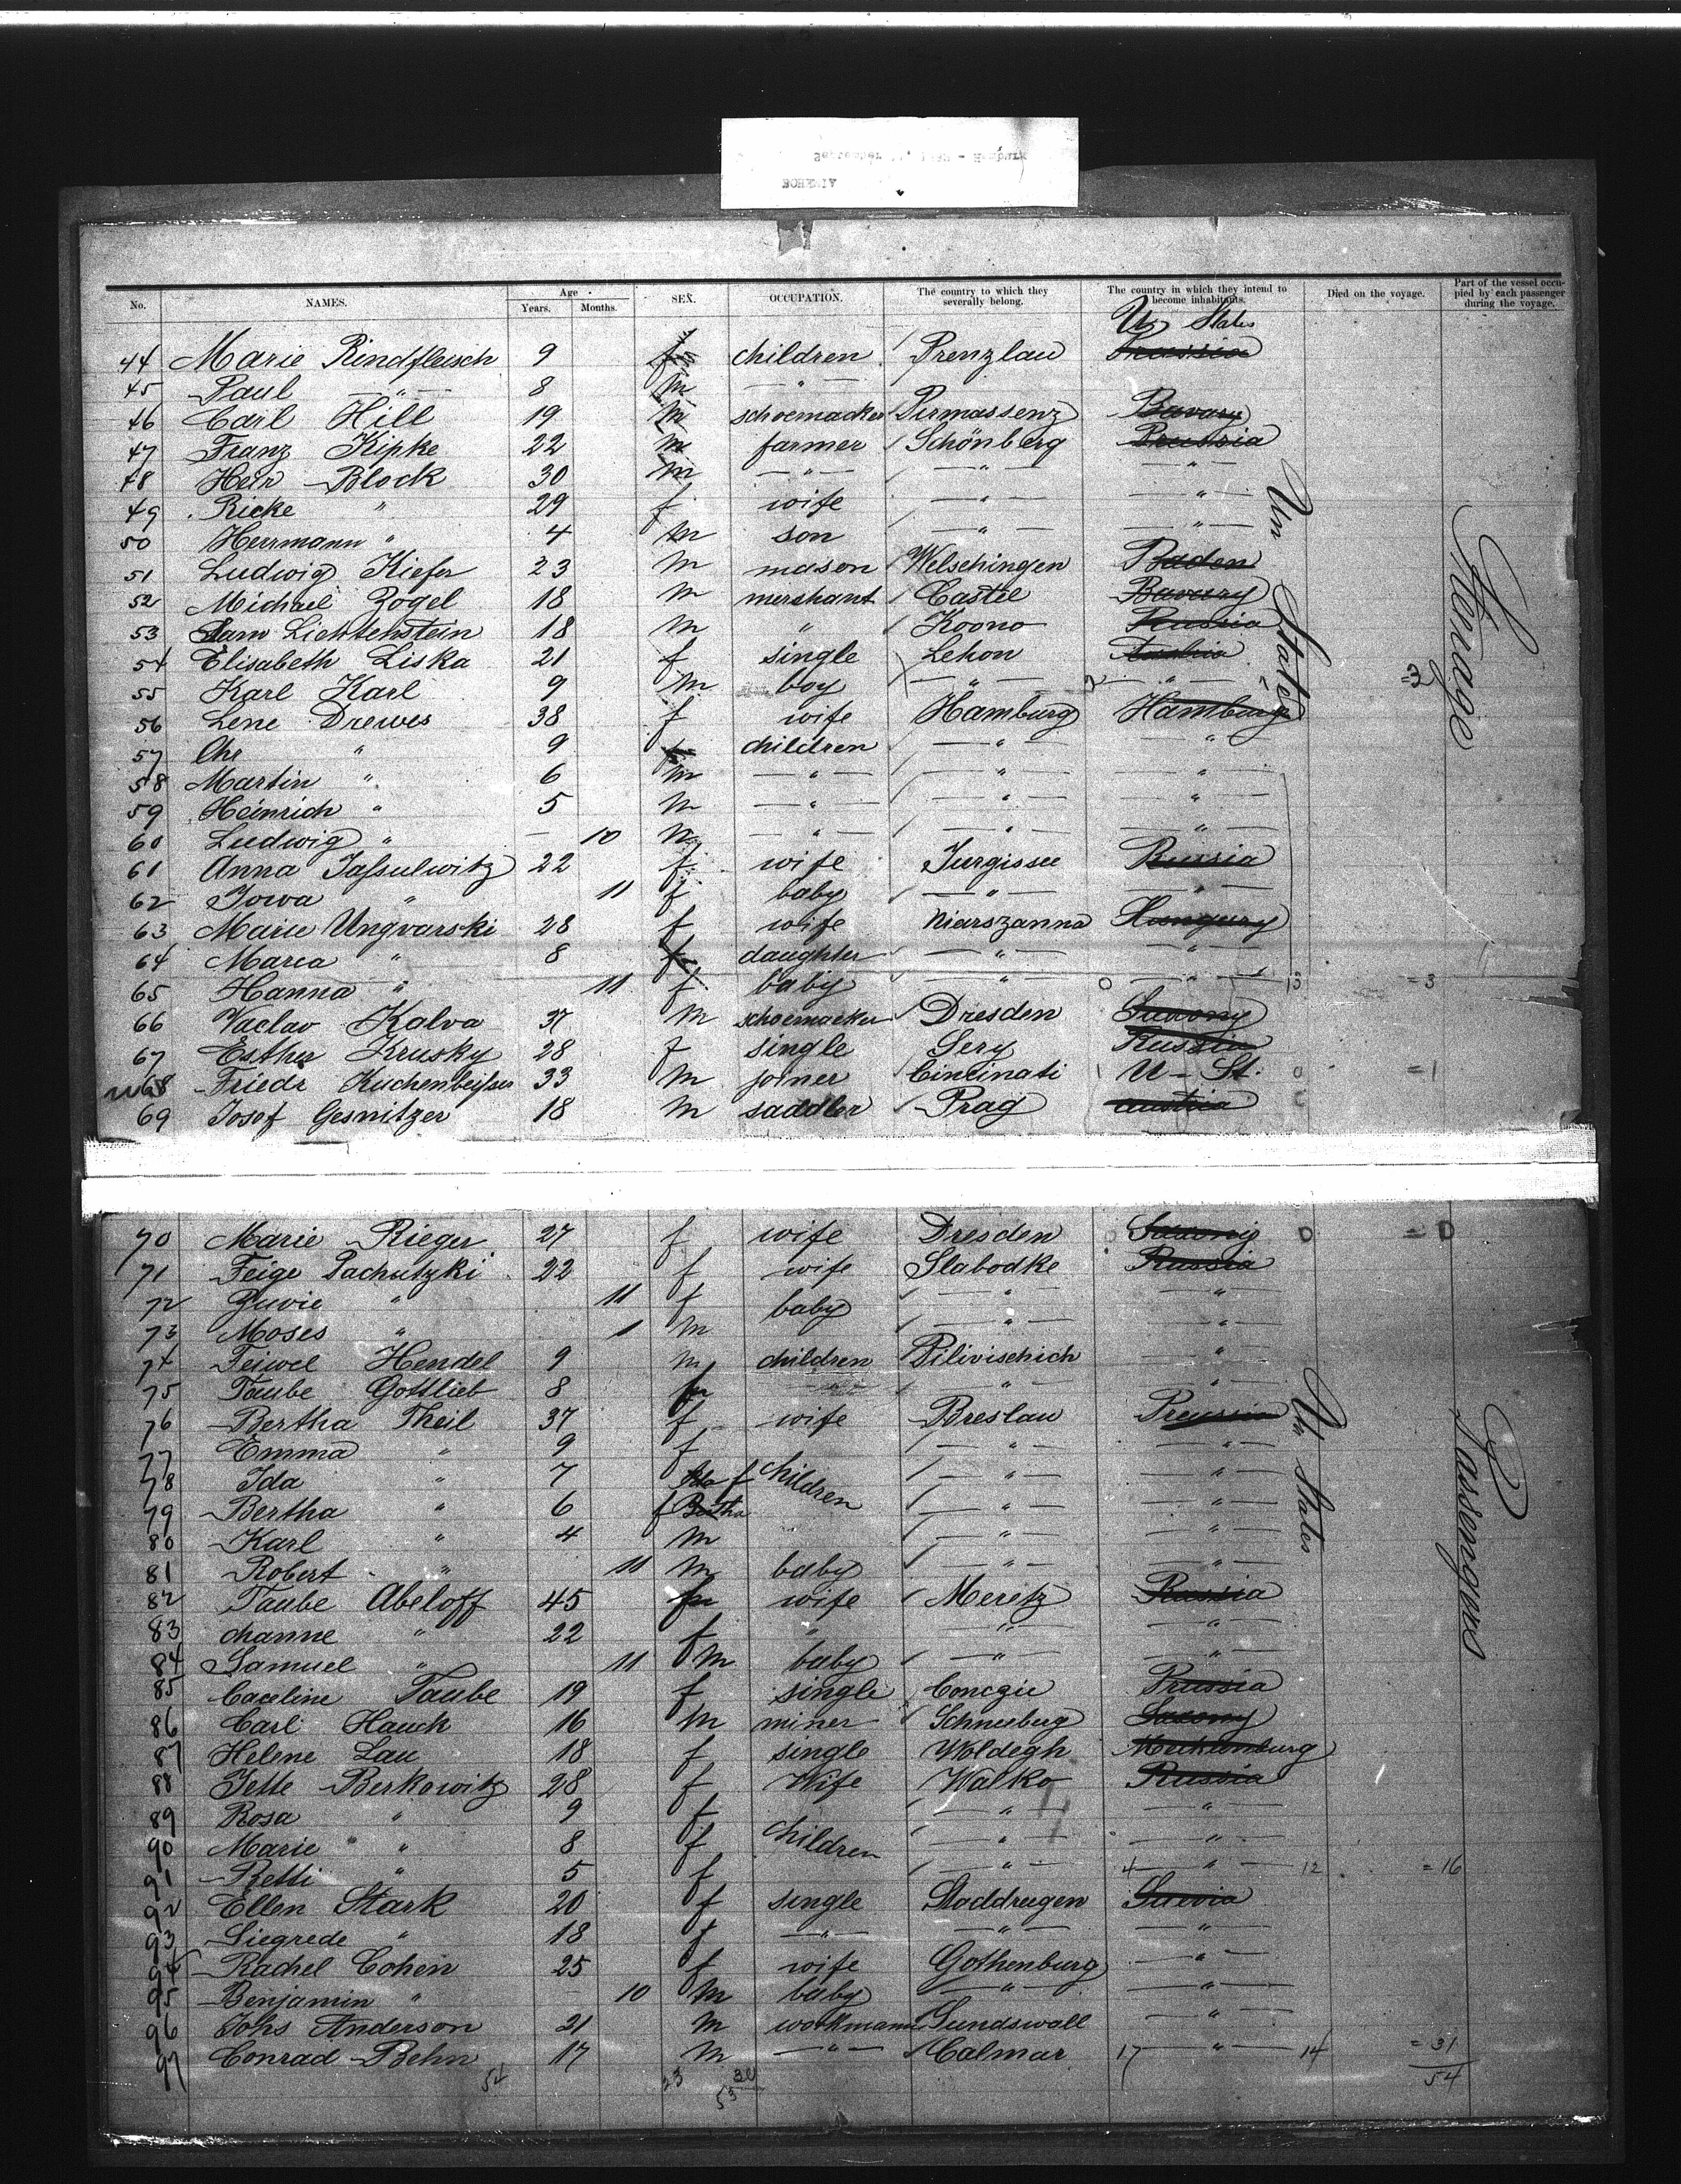 BOHEMIA
No. NAMES. Age. Years. Months. SEX. OCCUPATION. The country to which they severally belong. The country in which they intend to become inhabitants. Died on the voyage. Part of the vessel occupied by each passenger during the voyage.
U. States
44 Marie Rindfleisch 9 f children Prenzlau Prussia
45 Paul —"— 8 m —"—
46 Carl Hill 19 m schoemacker Pirmassenz Bavary
47 Franz Kipke 22 m farmer Schönberg Prussia
48 Heir Block 30 m —"— —"— —"—
49 Ricke " 29 f wife —"— —"—
50 Herrmann " 4 m son —"— —"—
51 Ludwig Kiefer 23 m mason Welschingen Baden
52 Michael Zogel 18 m merchant Castel Bavary
53 Sam Lichtenstein 18 m " Koono Russia
54 Elisabeth Liska 21 f single Lekon Austria
55 Karl Karl 9 m boy —"— 2 —"— =3
56 Lene Drewes 38 f wife Hamburg Hamburg
57 Che " 9 f children —"— "
58 Martin " 6 m —"— —"— "
59 Heinrich " 5 m —"— —"— "
60 Ludwig " — 10 m —"— —"— —"—
61 Anna Jassulwitz 22 f wife Jurgissee Russia
62 Jowa " 11 f baby —"— —"—
63 Marie Ungvarski 28 f wife Niarszanna Hungary
64 Maria " 8 f daughter —"— "
65 Hanna " 11 f baby —"— 0 —"— 13 =3
66 Vaclav Kalva 37 m schoemacker Dresden Saxony
67 Esther Krusky 28 f single Sery Russia
68 Friedr Kuchenbeisser 33 m joiner Cincinati 1 U-St. 0 =1
69 Josef Gesnitzer 18 m saddler Prag Austria
Un States
Steerage
70 Marie Rieger 27 f wife Dresden 0 Saxony 0 =0
71 Feige Pachutzki 22 f wife Slabodke Russia
72 Zuvie " 11 f baby —"— "
73 Moses " 1 m —"— "
74 Feiwel Hendel 9 m children Pilivischich "
75 Taube Gottlieb 8 f —"— "
76 Bertha Theil 37 f wife Breslau Preussia
77 Emma " 9 f —"— —"—
78 Ida " 7 Ida f children —"— —"—
79 Bertha " 6 f Bertha —"— —"—
80 Karl " 4 m —"— —"—
81 Robert " 11 m baby —"— —"—
82 Taube Abeloff 45 f wife Meretz Russia
83 channe " 22 f " —"— "
84 Samuel " 11 m baby —"— "
85 Caceline Taube 19 f single Conczie Prussia
86 Carl Hauck 16 m miner Schneeberg Saxony
87 Helene Lau 18 f single Woldegh Mecklenburg
88 Jette Berkowitz 28 f Wife Walko Russia
89 Rosa " 9 f —"— —"—
90 Marie " 8 f children —"— —"—
91 Betti " 5 f —"— 4 —"— 12 =16
92 Ellen Stark 20 f single Staddrugen Suevia
93 Siegrede " 18 f —"— —"— —"—
94 Rachel Cohen 25 f wife Gothenburg —"—
95 Benjamin " — 10 m baby —"— —"—
96 Johs Anderson 21 m workmann Sundswall —"—
97 Conrad Behn 17 m —"— Calmar 17 —"— 14 =31
54 23 30 53 54
Un States
Passengers